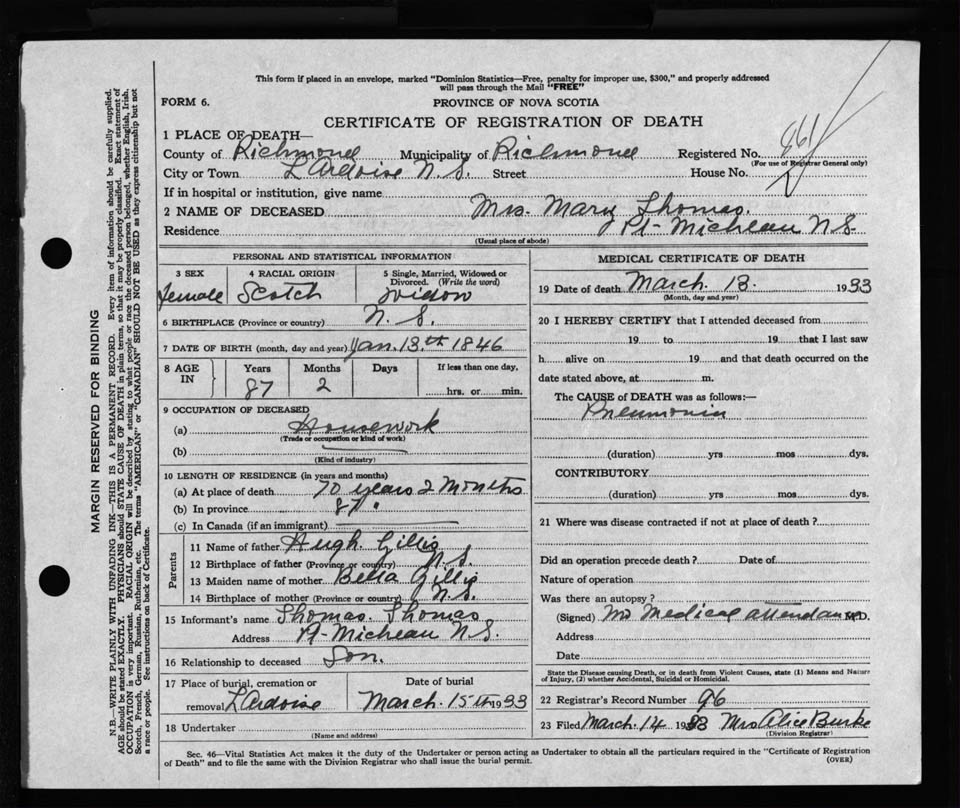 This form if placed in an envelope, marked "Dominion Statistics—Free, penalty for improper use, $300," and properly addressed
will pass through the Mail "FREE"
FORM 6.
PROVINCE OF NOVA SCOTIA
CERTIFICATE OF REGISTRATION OF DEATH
1 PLACE OF DEATH—
County of Richmond Municipality of Richmond Registered No. 461
(For use of Registrar General only)
City or Town L'Ardoise N.S. Street House No.
If in hospital or institution, give name
2 NAME OF DECEASED Mrs. Mary Thomas.
Residence Pt-Micheau N.S.
(Usual place of abode)
PERSONAL AND STATISTICAL INFORMATION
3 SEX female
4 RACIAL ORIGIN Scotch
5 Single, Married, Widowed or Divorced. (Write the word) Widow
6 BIRTHPLACE (Province or country) N.S.
7 DATE OF BIRTH (month, day and year) Jan. 13.th 1846
8 AGE IN Years Months Days If less than one day,
87 2 hrs. or min.
9 OCCUPATION OF DECEASED
(a) Housework
(Trade or occupation or kind of work)
(b)
(Kind of industry)
10 LENGTH OF RESIDENCE (in years and months)
(a) At place of death 70 years 2 months
(b) In province 87 "
(c) In Canada (if an immigrant)
Parents
11 Name of father Hugh Gillis
12 Birthplace of father (Province or country) N.S.
13 Maiden name of mother Bella Gillis
14 Birthplace of mother (Province or country) N.S.
15 Informant's name Thomas Thomas
Address Pt-Micheau N.S.
16 Relationship to deceased Son.
17 Place of burial, cremation or removal L'Ardoise
Date of burial March 15th 1933
18 Undertaker
(Name and address)
MEDICAL CERTIFICATE OF DEATH
19 Date of death March 13. 1933
(Month, day and year)
20 I HEREBY CERTIFY that I attended deceased from
19 to 19 that I last saw
h alive on 19 and that death occurred on the
date stated above, at m.
The CAUSE of DEATH was as follows:—
Pneumonia
(duration) yrs mos dys.
CONTRIBUTORY
(duration) yrs mos dys.
21 Where was disease contracted if not at place of death?
Did an operation precede death? Date of
Nature of operation
Was there an autopsy?
(Signed) No Medical attendance M.D.
Address
Date
State the Disease causing Death, or in death from Violent Causes, state (1) Means and Nature
of Injury, (2) whether Accidental, Suicidal or Homicidal.
22 Registrar's Record Number 96
23 Filed March 14 1933 Mrs Alice Burke
(Division Registrar)
Sec. 46—Vital Statistics Act makes it the duty of the Undertaker or person acting as Undertaker to obtain all the particulars required in the "Certificate of Registration
of Death" and to file the same with the Division Registrar who shall issue the burial permit.
(OVER)
MARGIN RESERVED FOR BINDING
N.B.—WRITE PLAINLY WITH UNFADING INK—THIS IS A PERMANENT RECORD. Every item of information should be carefully supplied.
AGE should be stated EXACTLY. PHYSICIANS should STATE CAUSE OF DEATH in plain terms, so that it may be properly classified. Exact statement of
OCCUPATION is very important. RACIAL ORIGIN will be described by stating to what people or race the deceased person belonged, whether English, Irish,
Scotch, French, German, Russian, Ruthenian, etc. The terms "AMERICAN" or "CANADIAN" SHOULD NOT BE USED as they express citizenship but not
a race or people. See instructions on back of Certificate.